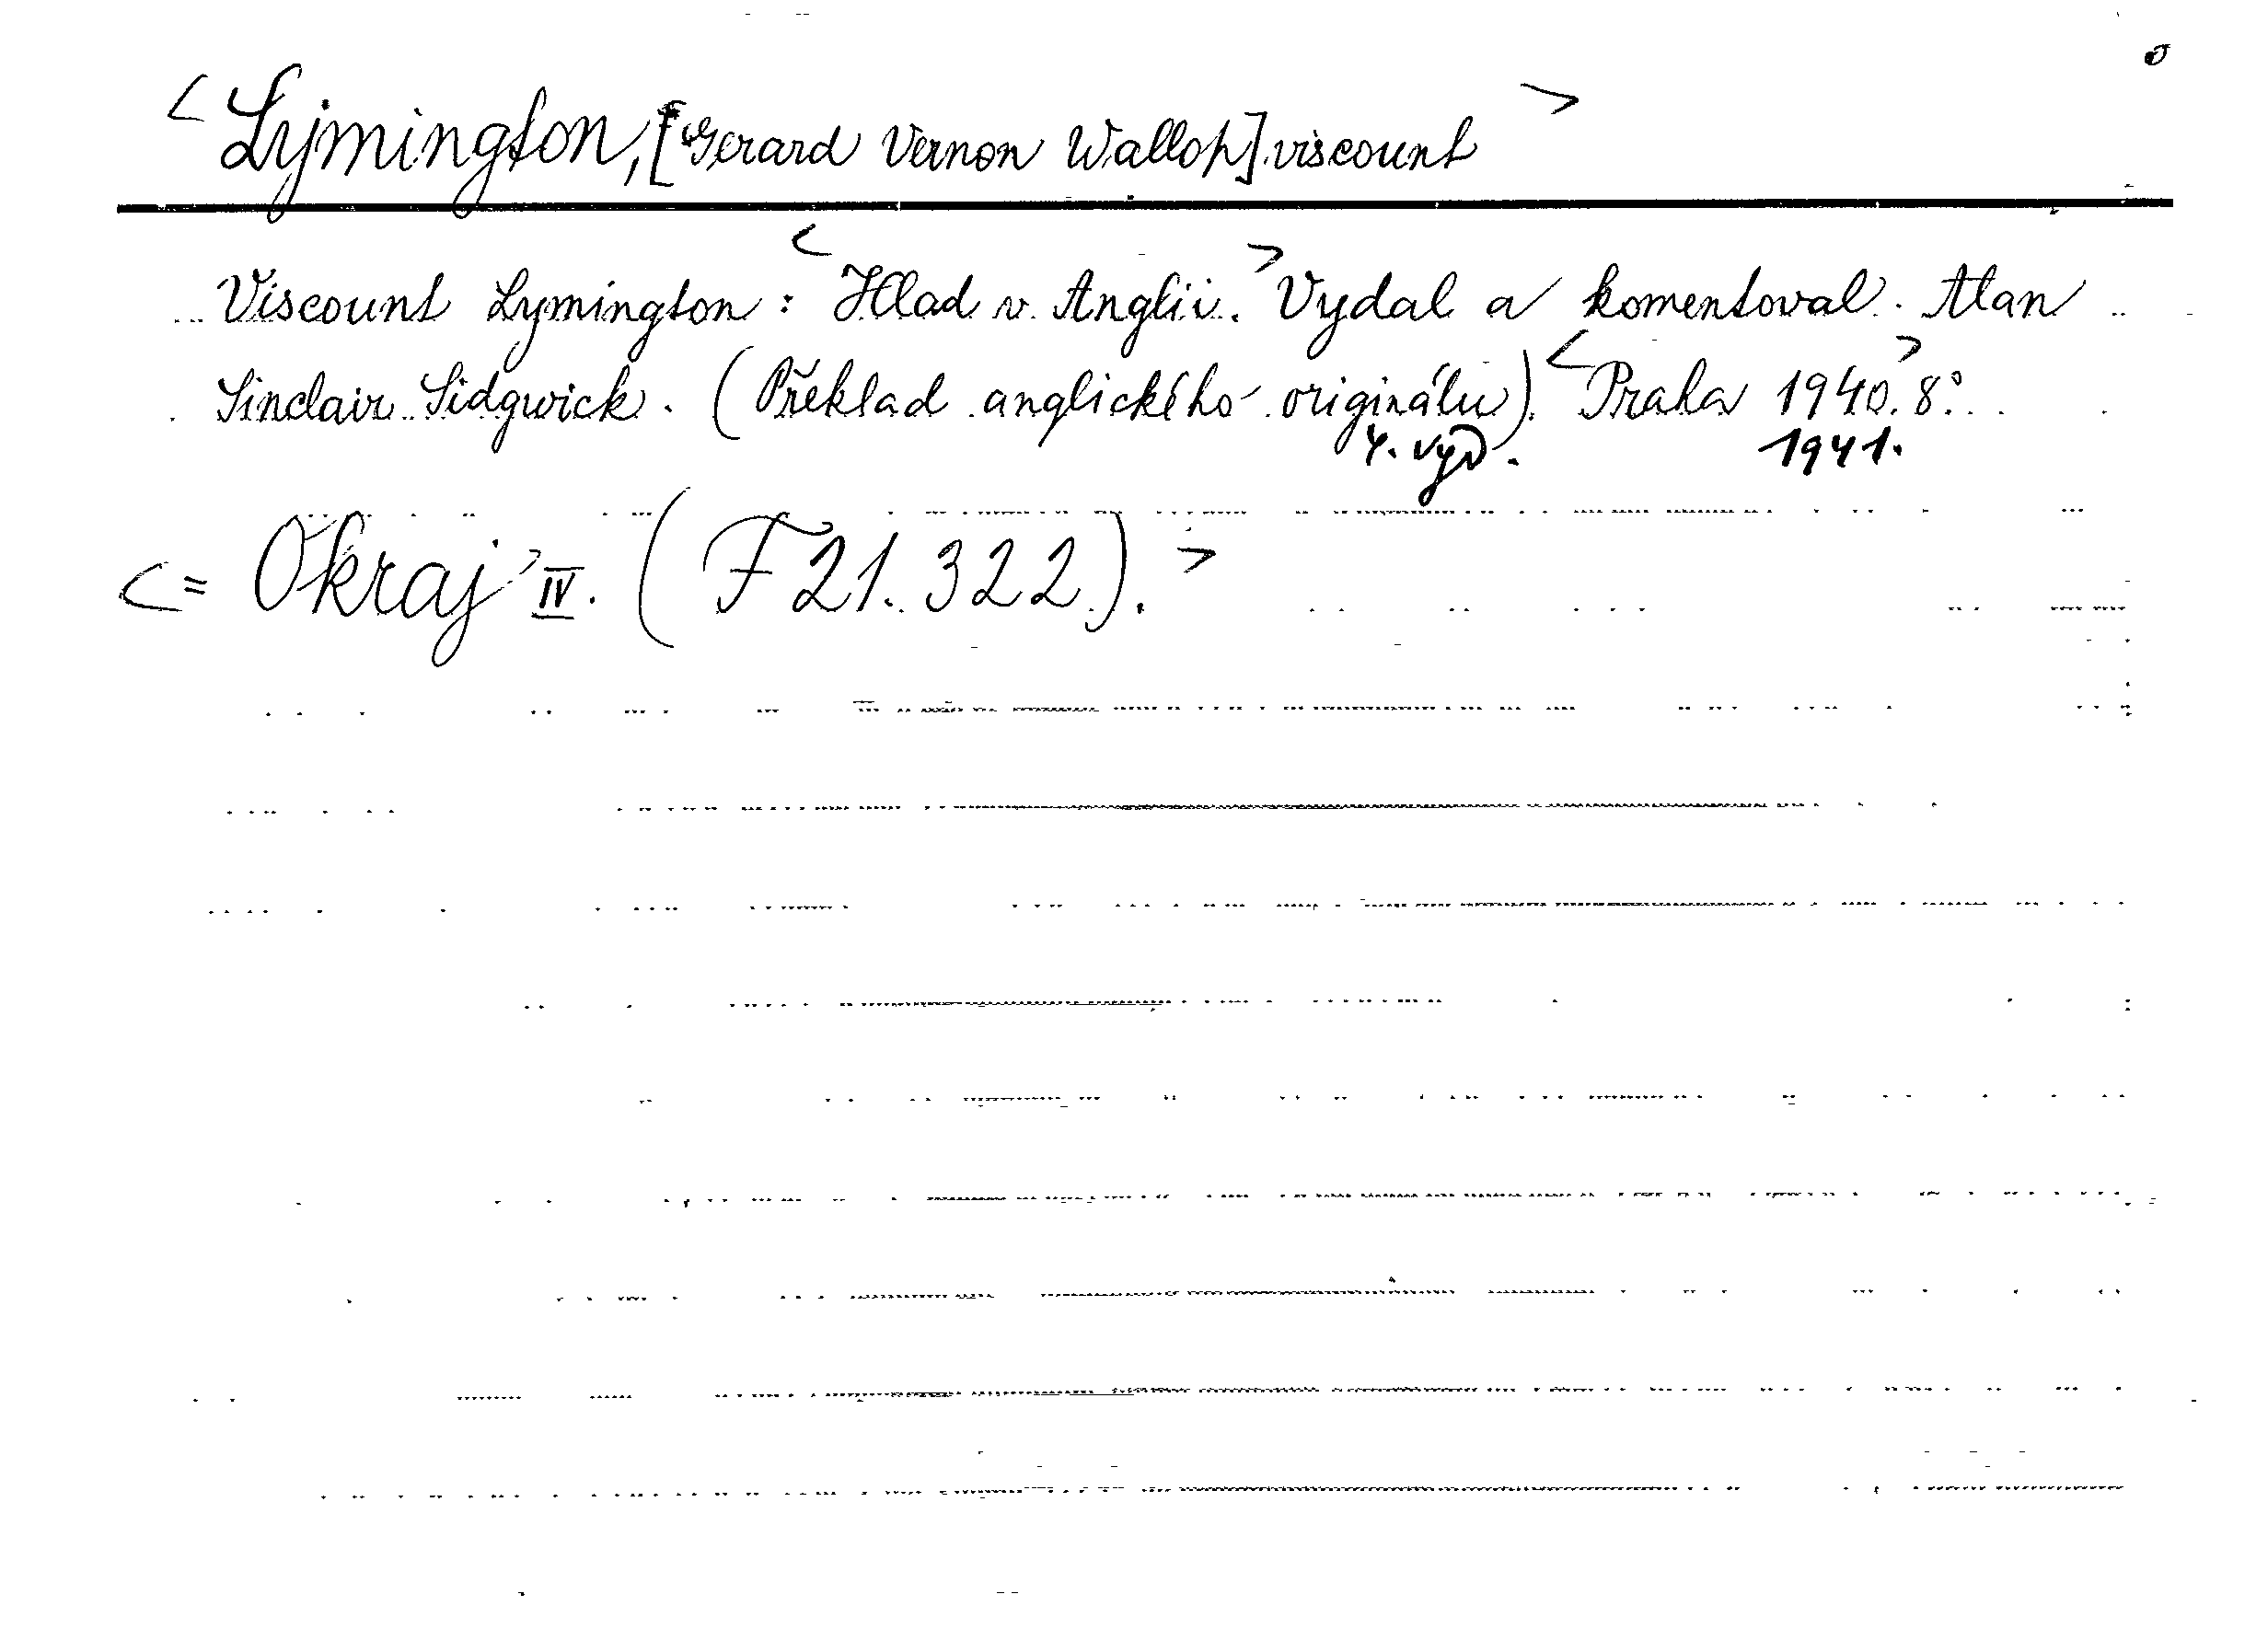 < Lymington, [Gerard Vernon Wallop] viscount >
Viscount Lymington: <Hlad v Anglii.> Vydal a komentoval Alan
Sinclair Sidgwick. (Překlad anglického originálu). <Praha 1940.> 8°.
4. vyd. 1941.
<= Okraj IV. (F 21.322). >